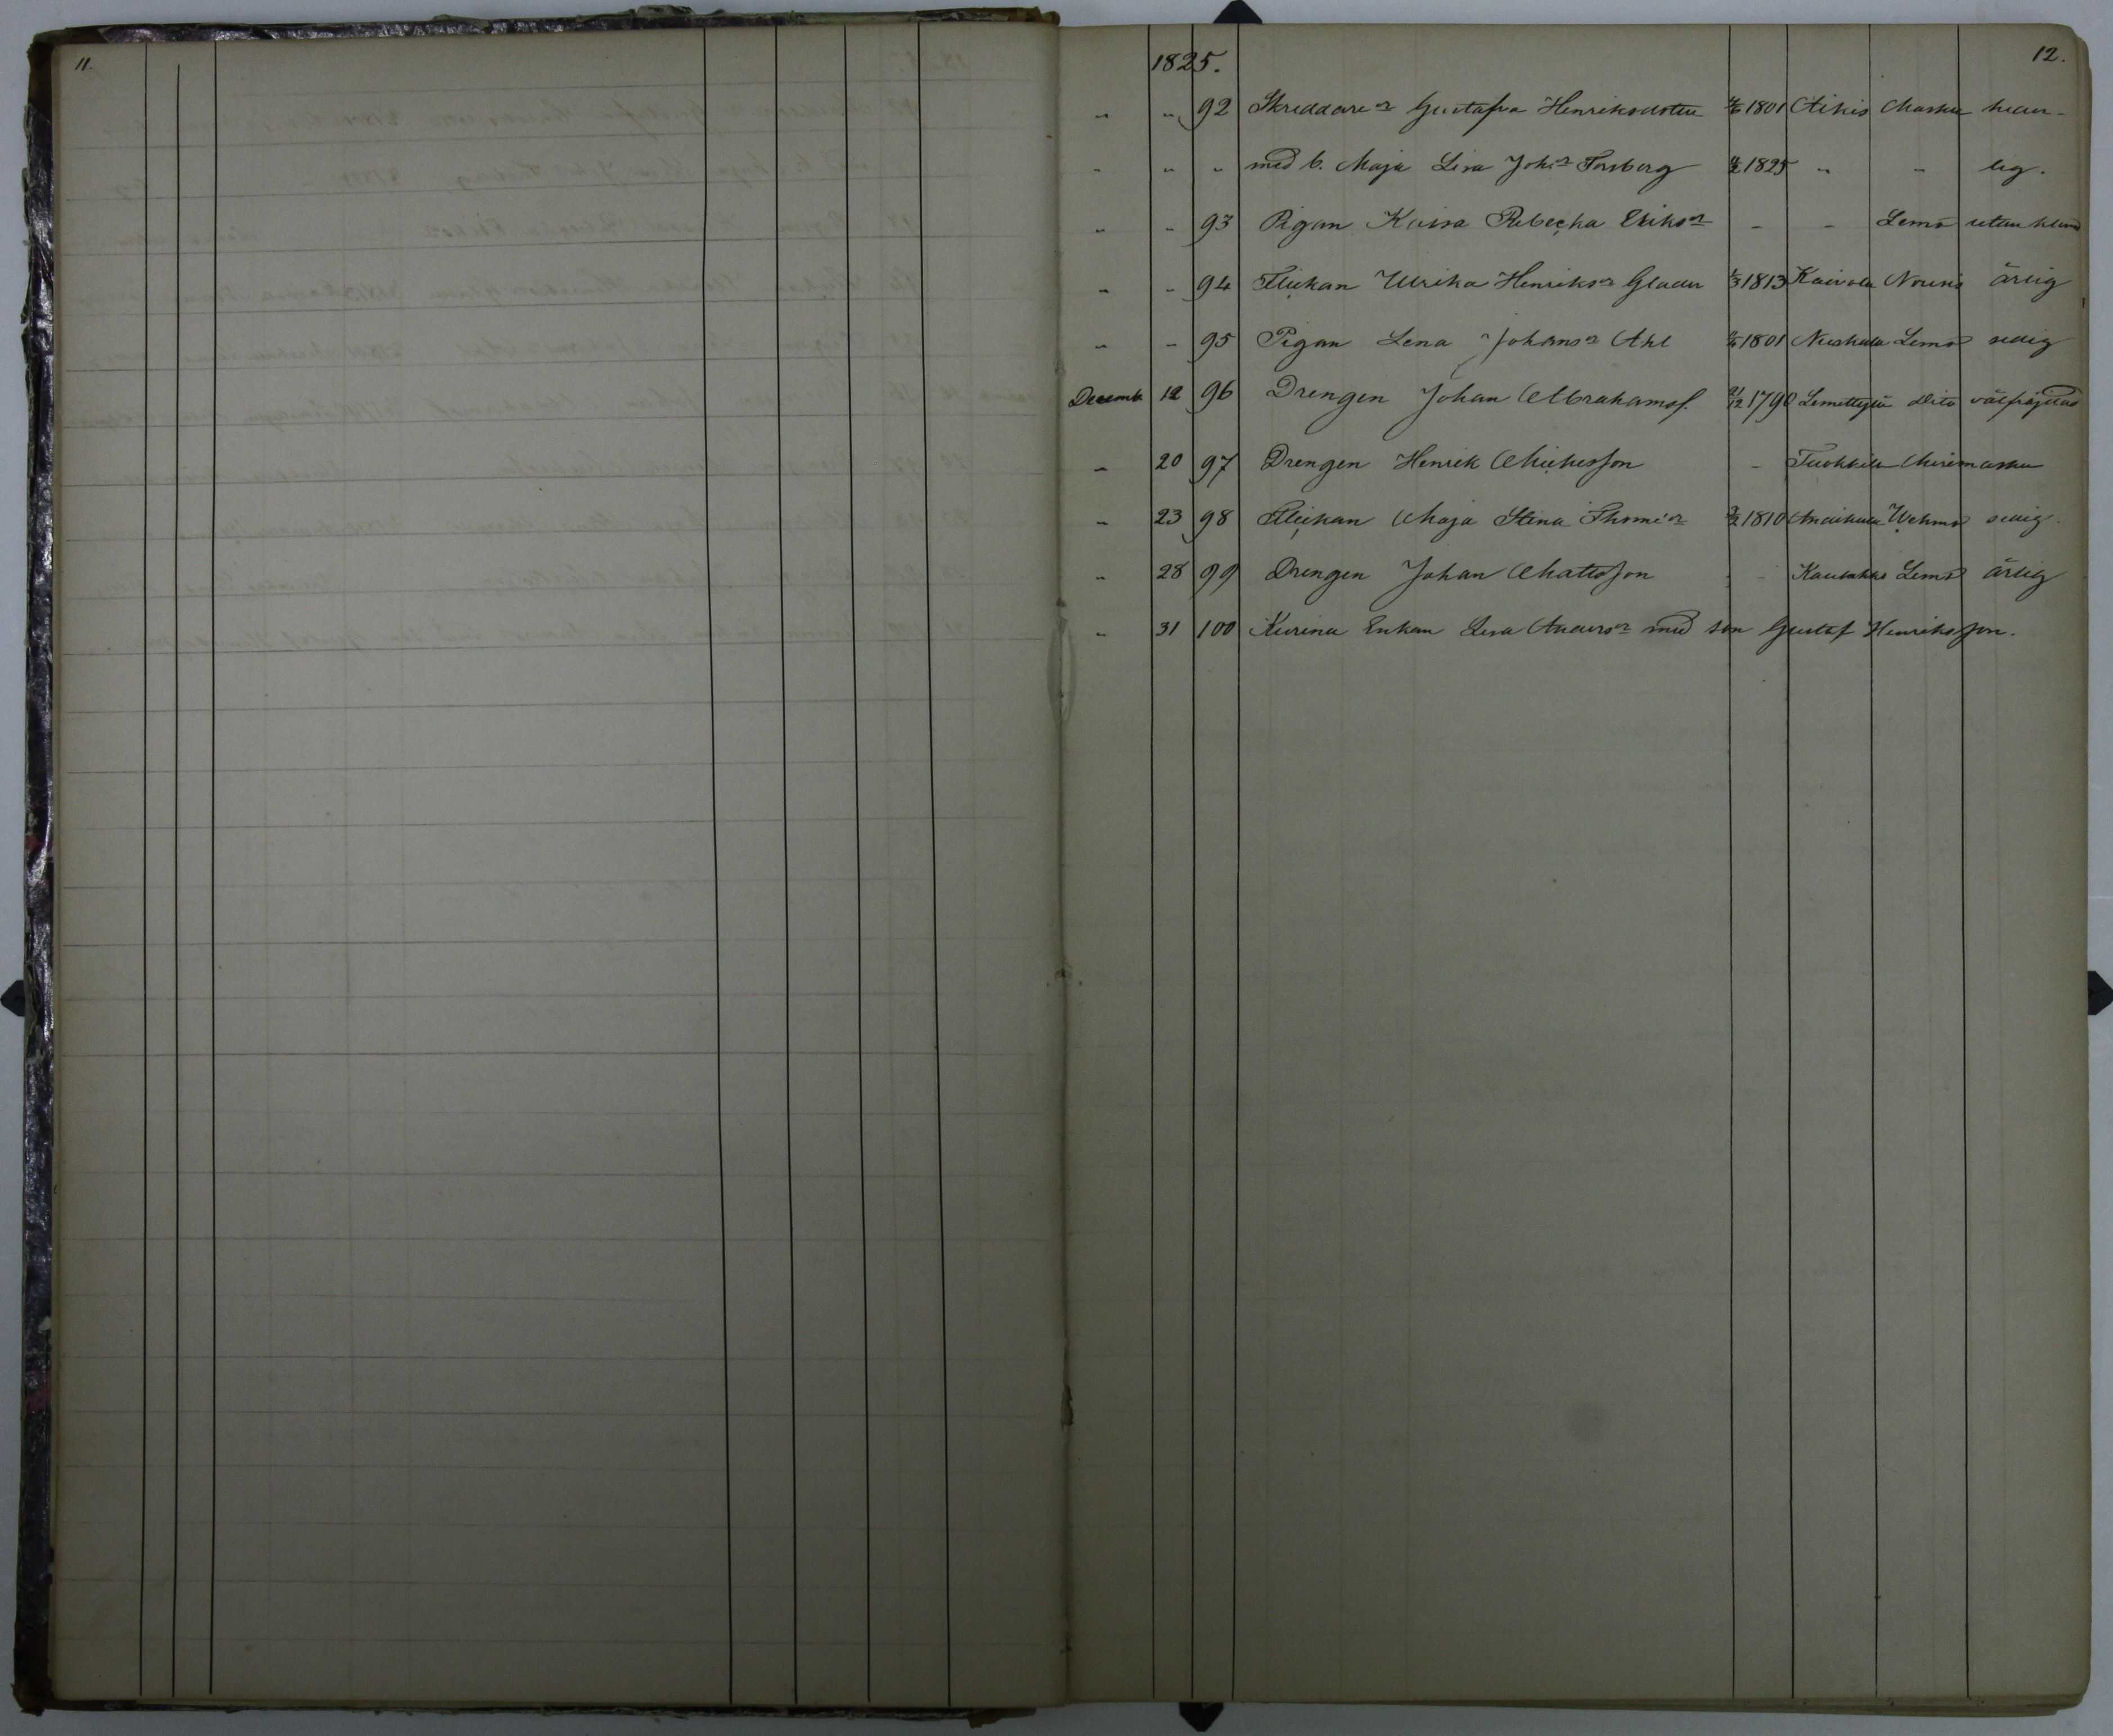 11.
1825. 12.
" " 92 Skreddare Gustafva Henriksdotter 1801 Aikis Masku heder-
" " " med b. Maja Lisa Joh:s Forsberg 1825 " " lig.
" " 93 Pigan Kaisa Rebecka Eriks - - Lemo utan hind
" " 94 Flickan Ulrika Henriks Glader 1/3 1813 Kairola Nousis ärlig
" " 95 Pigan Lena Johans Ahl 1801 Lemo sedig
Decemb. 12 96 Drengen Johan Abrahamss. 21/12 1790 Dito välfräjdad
" 20 97 Drengen Henrik Michelsson - Merimasku
" 23 98 Flickan Maja Stina Thom: 1810 Wehmo sedig
" 28 99 Drengen Johan Mattsson - Lemo ärlig
" 31 100 Enkan Lisa Anders med son Gustaf Henriksson.